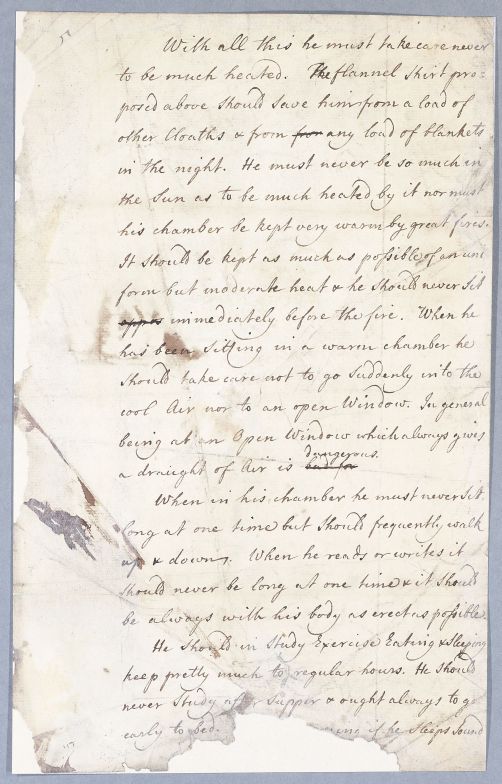 With all this he must take care never
to be much heated. The flannel Shirt pro=
posed above should save him from a load of
other Cloaths & from from any load of blankets
in the night. He must never be so much in
the Sun as to be much heated by it nor must
his chamber be kept very warm by great fires.
It should be kept as much as possible of an uni
form but moderate heat & he should never Sit
immediately before the fire. When he
has been Sitting in a warm chamber he
should take care not to go Suddenly into the
cool Air nor to an open Window. In general
being at an Open Window which always gives
dangerous.
a draught of Air is bad for
When in his chamber he must never Sit
long at one time but should frequently walk
up & down. When he reads or writes it
should never be long at one time & it should
be always with his body as erect as possible.
He should in Study Exercise Eating & Sleeping
keep pretty much to regular hours. He should
never Study after Supper & ought always to go
early to bed. if he Sleeps Sound